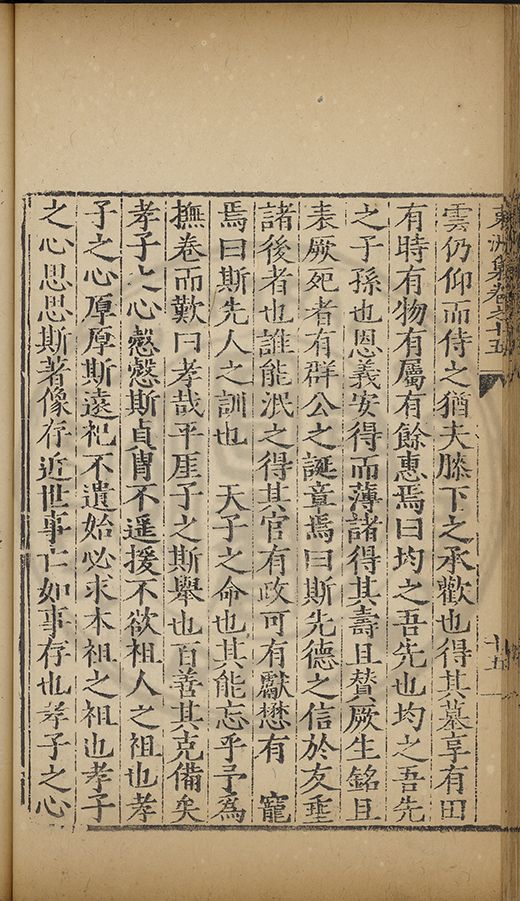 東洲集卷之十五
十五
雲仍仰而侍之猶夫膝下之承歡也得其墓享有田
有時有物有屬有餘惠焉曰均之吾先也均之吾先
之子孫也恩義安得而薄諸得其壽且贊厥生銘且
表厥死者有群公之誕章焉曰斯先德之信於友埀
諸後者也誰能泯之得其官有政可有獻懋有 寵
焉曰斯先人之訓也 天子之命也其能忘乎予為
撫卷而歎曰孝哉平厓子之斯舉也百善其克備矣
孝子之心慤慤斯貞胄不遥援不欲祖人之祖也孝
子之心厚厚斯遠祀不遺始必求本祖之祖也孝子
之心思思斯著像存近世事亡如事存也孝子之心